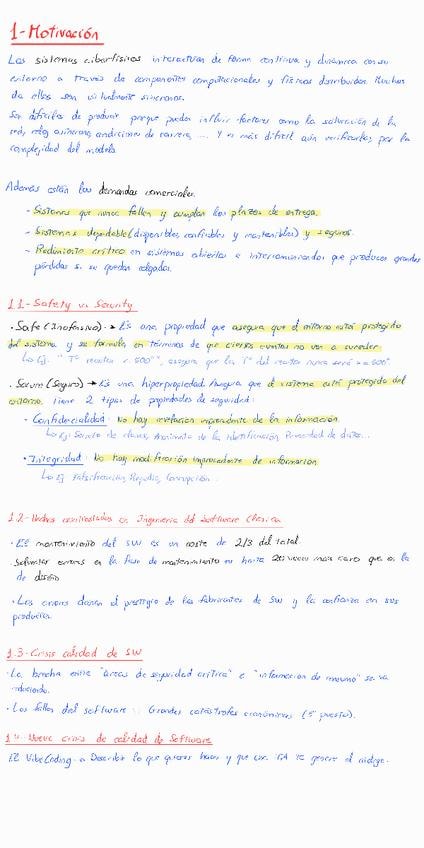 1-Motivación
Los sistemas ciberfísicos interactúan de forma continua y dinámica con su
entorno a través de componentes computacionales y físicas distribuidas. Muchos
de ellos son
Son difíciles de predecir porque pueden influir factores como la saturación de la
red, reloj asíncrono, condiciones de carrera, ... Y es más difícil aún verificarlos por la
complejidad del modelo.
Además están las demandas comerciales.
- Sistemas que nunca fallen y cumplan los plazos de entrega.
- Sistemas dependable (disponibles, confiables y mantenibles) y seguros.
- Rendimiento crítico en sistemas abiertos e intercomunicados que producen grandes
pérdidas si se quedan colgados.
1.1-Safety vs Security
· Safe (Inofensivo) → Es una propiedad que asegura que el entorno está protegido
del sistema y se formula en términos de que ciertos eventos no van a suceder.
Ej: "Tº reactor < 500º", asegura que la Tº del reactor nunca será >= 500º.
· Secure (Seguro) → Es una hiperpropiedad. Asegura que el sistema está protegido del
entorno. Tiene 2 tipos de propiedades de seguridad:
- Confidencialidad: No hay revelación improcedente de la información.
Ej: Secreto de claves, Anonimato de la identificación, Privacidad de datos...
· Integridad: No hay modificación improcedente de información.
Ej: Falsificación, Repudio, Corrupción...
1.2- Hechos contrastados en Ingeniería del Software Clásica
· El mantenimiento del SW es un coste de 2/3 del total.
· Solventar errores en la fase de mantenimiento es hasta 20 veces más caro que en la
de diseño
· Los errores dañan el prestigio de los fabricantes de SW y la confianza en sus
productos.
1.3- Crisis calidad de SW
· La brecha entre "áreas de seguridad crítica" e "información de consumo" se va
reduciendo.
· Los fallos del software Grandes catástrofes económicas (5º puesto).
1.4- Nueva crisis de calidad de Software
El VibeCoding → Describir lo que quieres hacer y que una IA te genere el código.